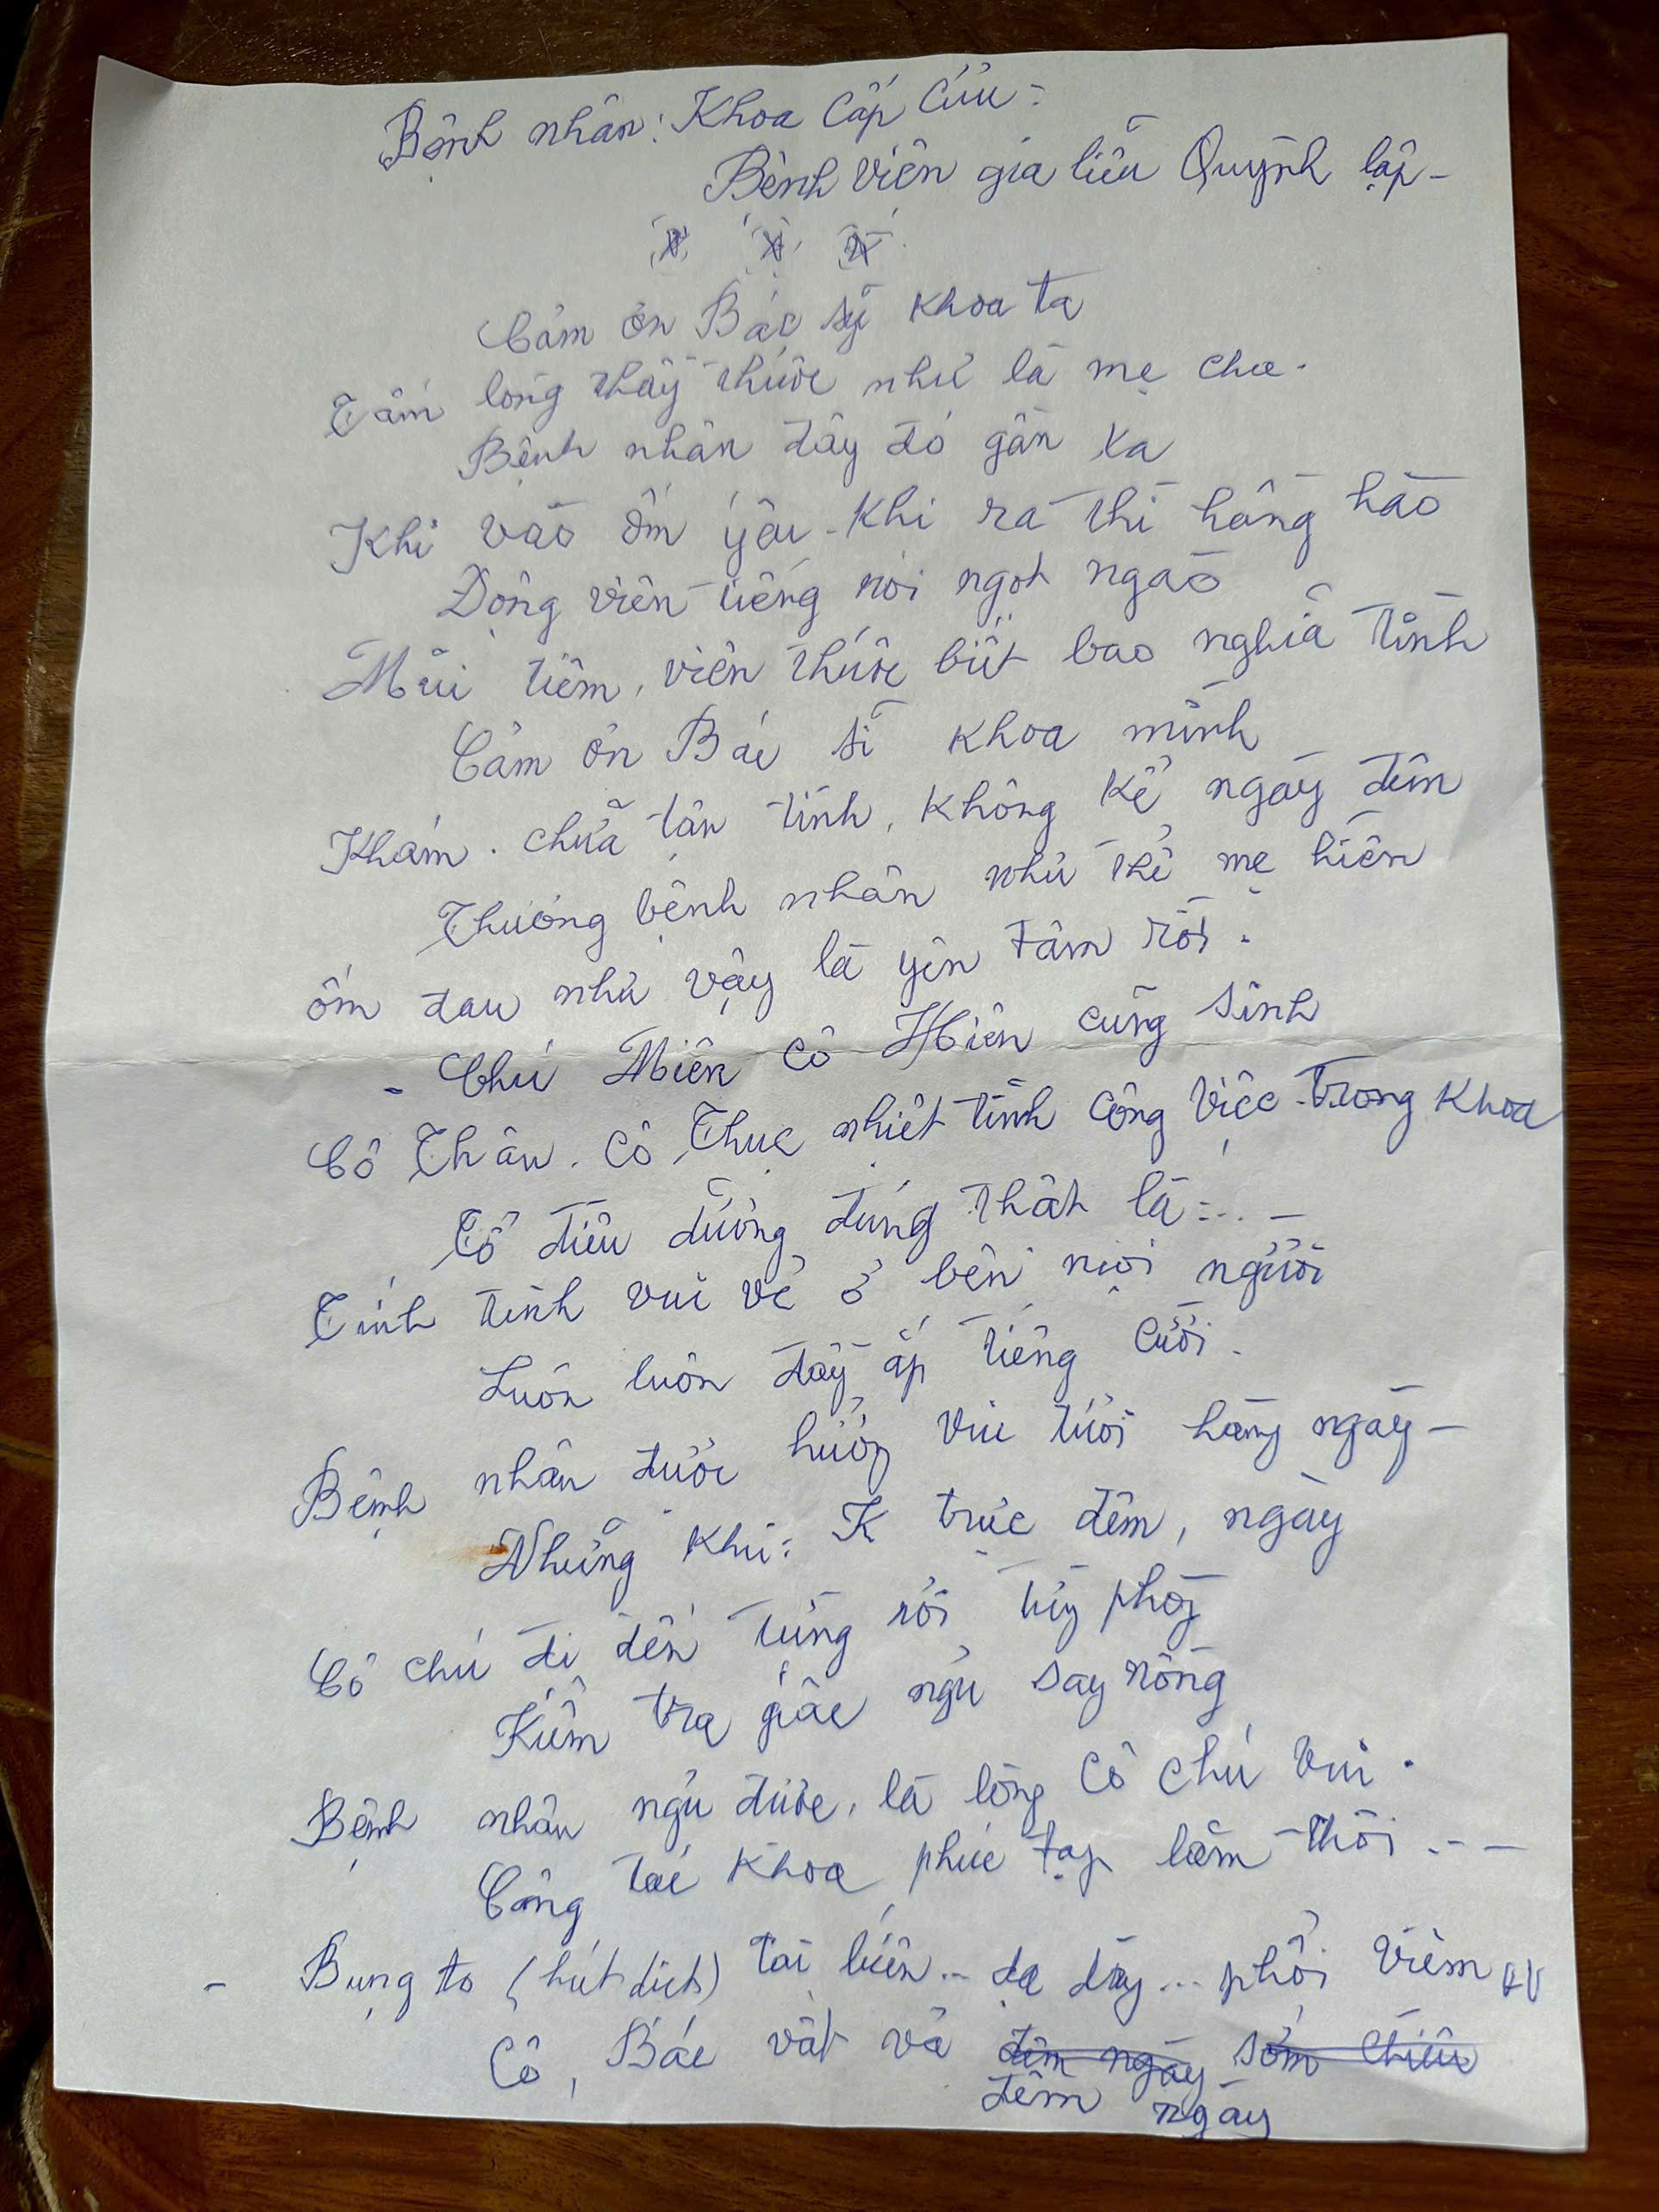 Bệnh nhân: Khoa Cấp Cứu:
Bệnh viện gia liễu Quỳnh lập -
Cảm ơn Bác sỹ khoa ta
Tấm lòng thầy thuốc như là mẹ cha.
Bệnh nhân đây đó gần xa
Khi vào ốm yếu - khi ra thì hồng hào
Động viên tiếng nói ngọt ngào
Mũi tiêm, viên thuốc biết bao nghĩa tình
Cảm ơn Bác sĩ khoa mình
Khám. chữa tận tình, không kể ngày đêm
Thương bệnh nhân như thể mẹ hiền
ốm đau như vậy là yên tâm rồi.
- Chú Miên cô Hiên cùng Sinh
Cô Thân. cô Thục nhiệt tình công việc trong khoa
Tổ điều dưỡng đúng thật là:.. -
Tính tình vui vẻ ở bên mọi người
Luôn luôn đầy ắp tiếng cười.
Bệnh nhân được hưởng vui tươi hàng ngày -
Những khi: K trực đêm, ngày
Cô chú đi đến từng rồi từng phòng
Kiểm tra giấc ngủ say nồng
Bệnh nhân ngủ được, là lòng cô chú vui.
Công tác khoa phức tạp lắm thôi .- -
- Bụng to (hút dịch) tai biến.. dạ dày... phổi viêm
Cô, Bác vất vả đêm ngày sớm chiều
đêm ngày